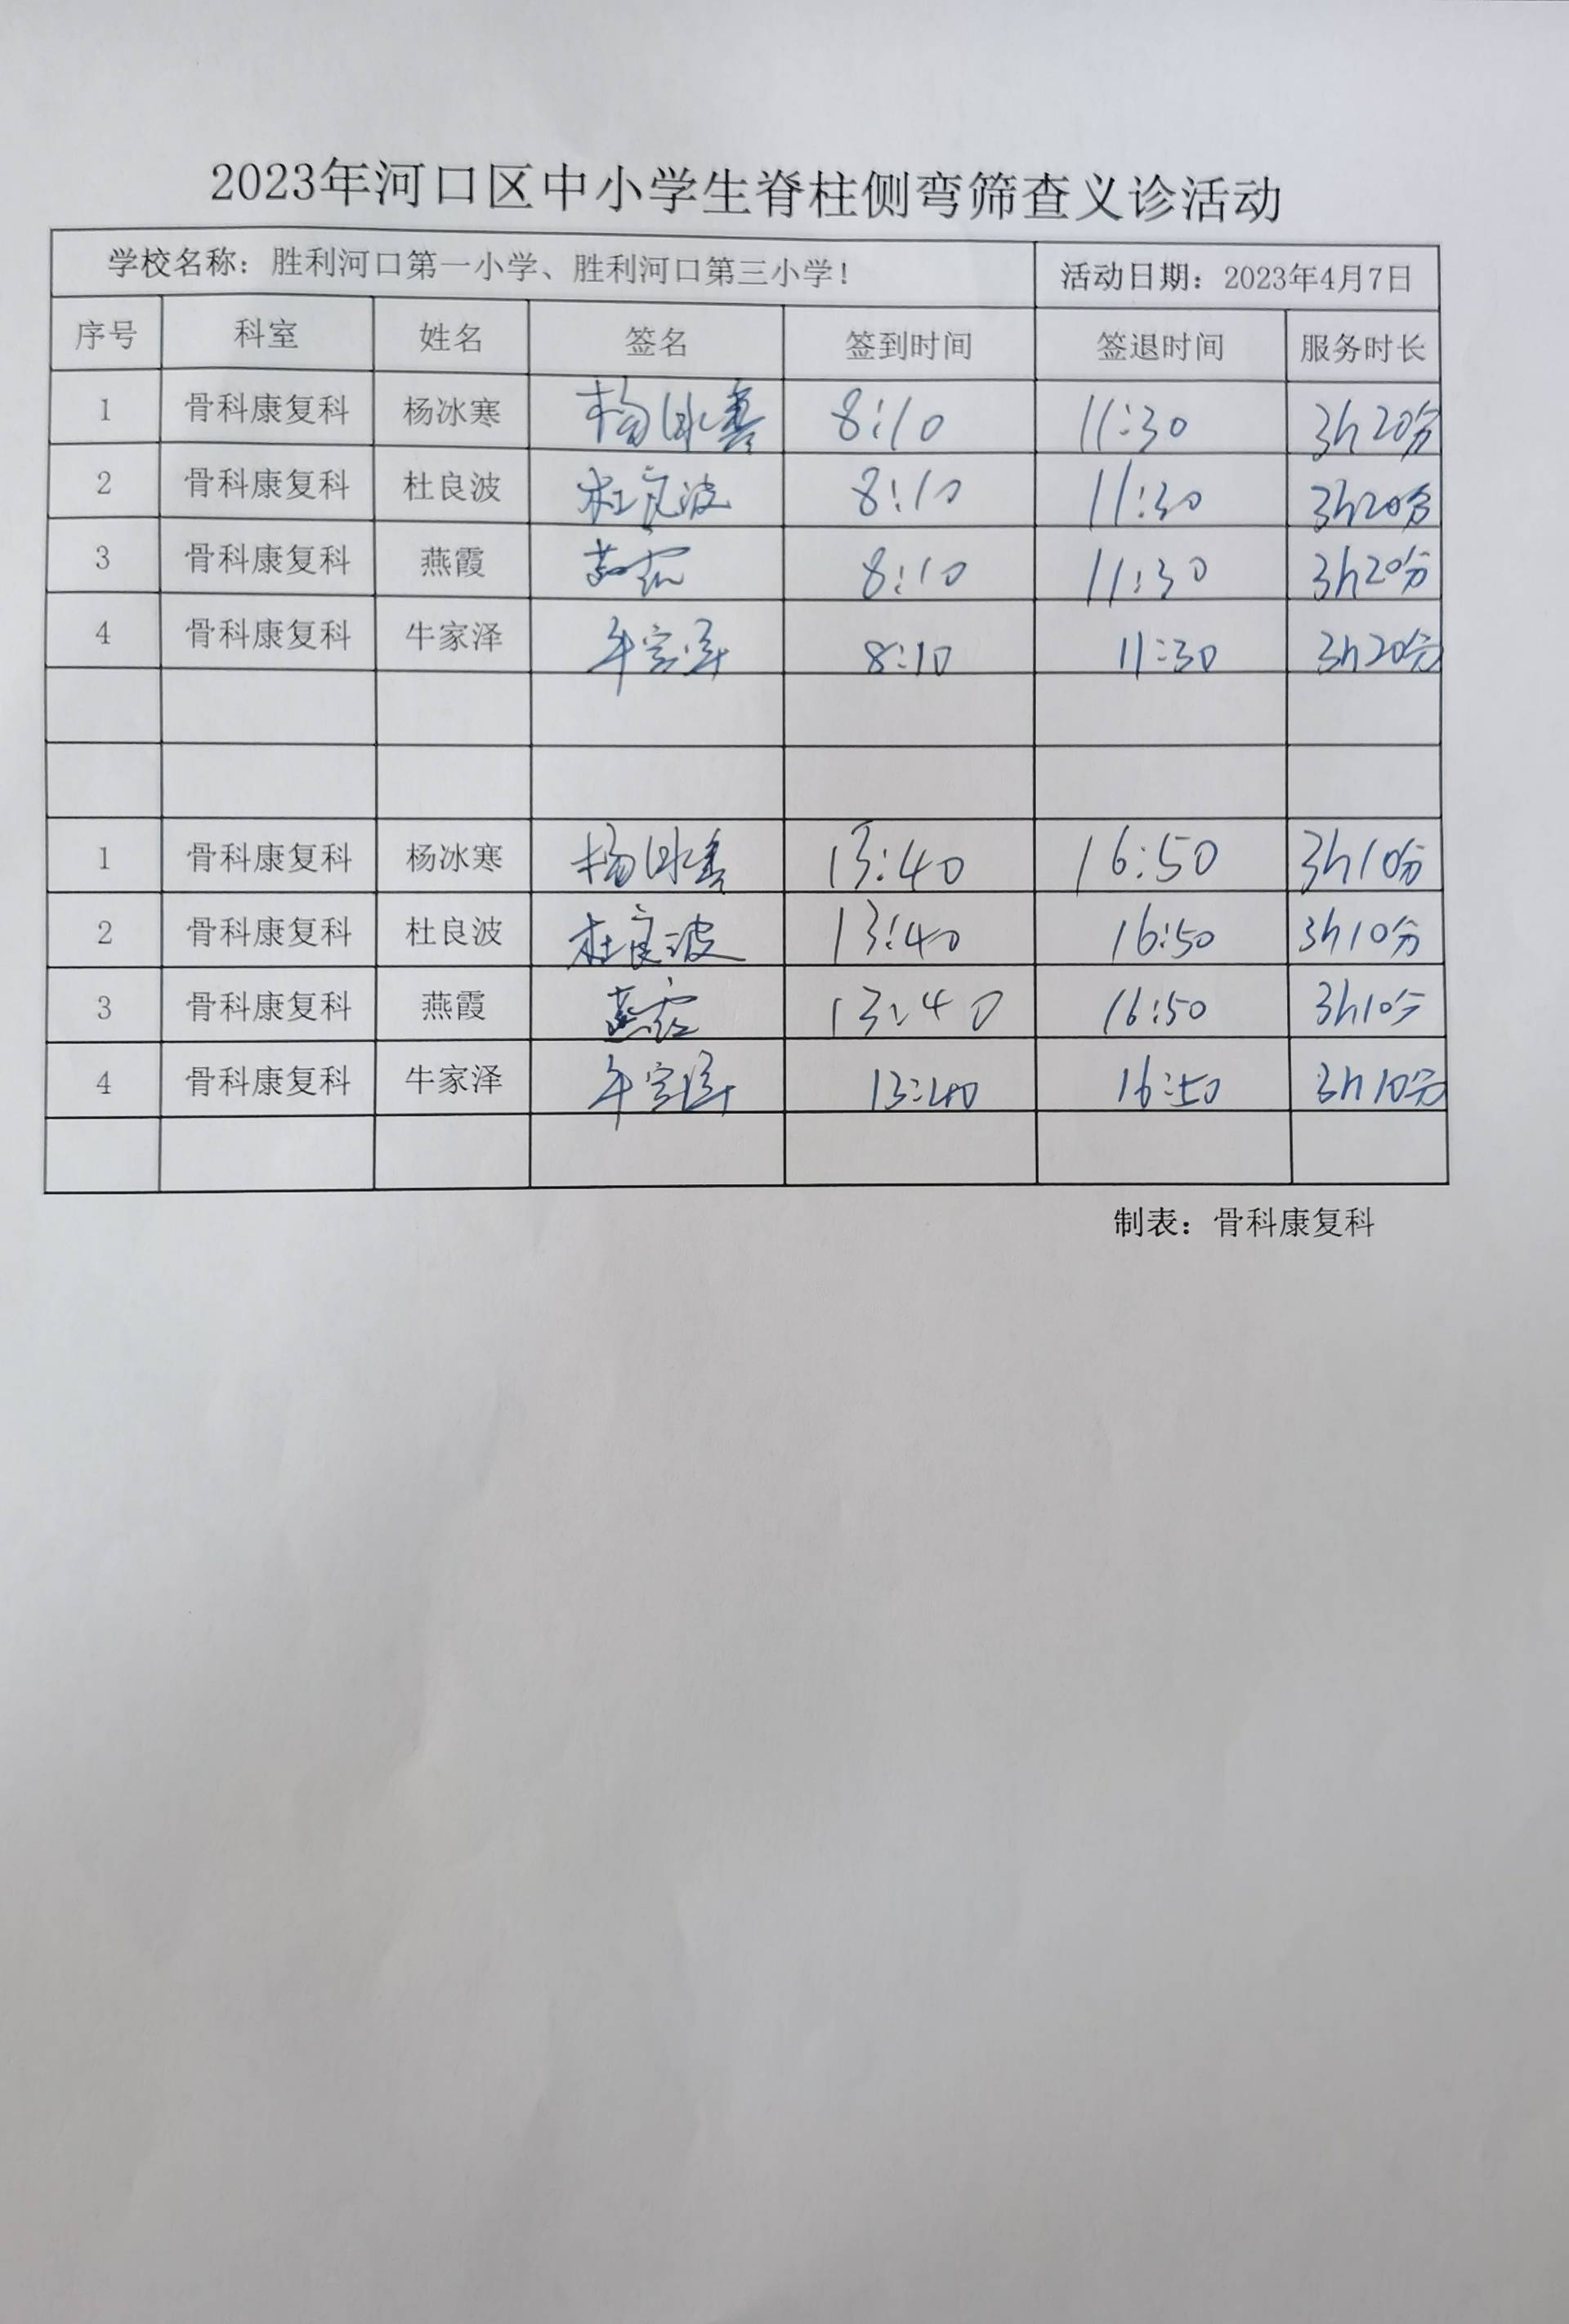 2023年河口区中小学生脊柱侧弯筛查义诊活动
学校名称：胜利河口第一小学、胜利河口第三小学！ 活动日期：2023年4月7日
序号 科室 姓名 签名 签到时间 签退时间 服务时长
1 骨科康复科 杨冰寒 杨冰寒 8:10 11:30 3h20分
2 骨科康复科 杜良波 杜良波 8:10 11:30 3h20分
3 骨科康复科 燕霞 燕霞 8:10 11:30 3h20分
4 骨科康复科 牛家泽 牛家泽 8:10 11:30 3h20分
1 骨科康复科 杨冰寒 杨冰寒 13:40 16:50 3h10分
2 骨科康复科 杜良波 杜良波 13:40 16:50 3h10分
3 骨科康复科 燕霞 燕霞 13:40 16:50 3h10分
4 骨科康复科 牛家泽 牛家泽 13:40 16:50 3h10分
制表：骨科康复科